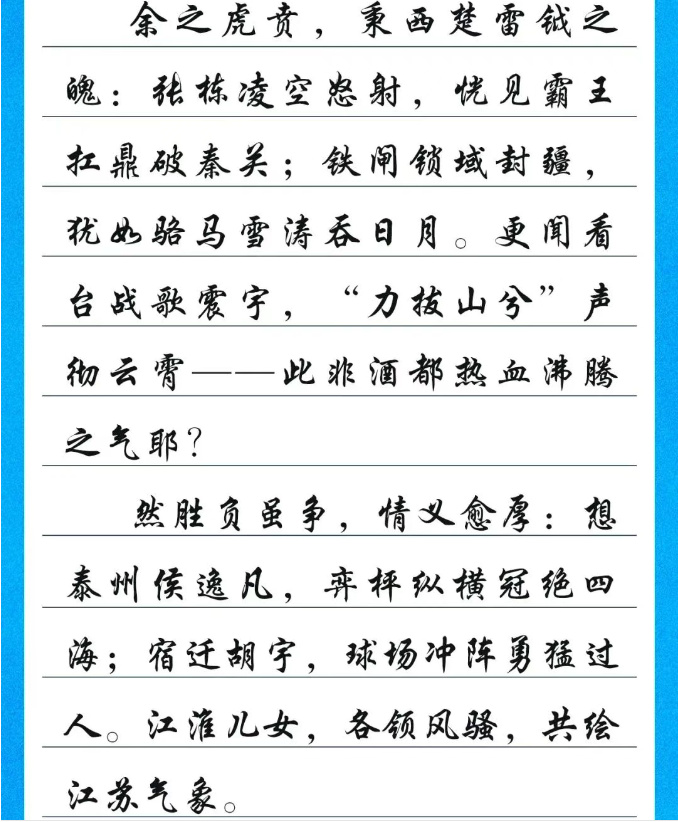 余之虎贲，秉西楚雷钺之
魄：张栋凌空怒射，恍见霸王
扛鼎破秦关；铁闸锁域封疆，
犹如骆马雪涛吞日月。更闻看
台战歌震宇，“力拔山兮”声
彻云霄——此非酒都热血沸腾
之气耶？
然胜负虽争，情义愈厚：想
泰州侯逸凡，弈枰纵横冠绝四
海；宿迁胡宇，球场冲阵勇猛过
人。江淮儿女，各领风骚，共绘
江苏气象。